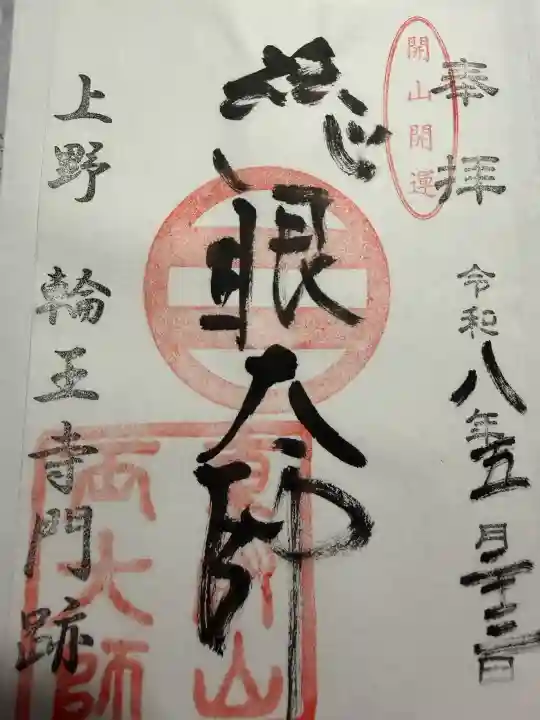 奉拝
開山開運
令和八年五月二十三日
慈眼大師
東叡山
両大師
上野 輪王寺門跡